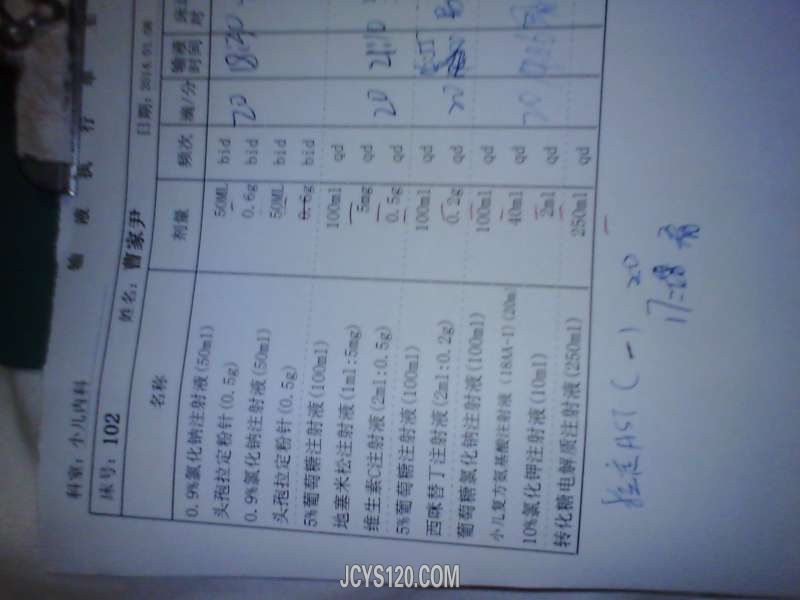 输 液 执 行 单
科室: 小儿内科 日期: 2014.01.06
床号: 102 姓名: 曹家尹
名称 剂量 频次 滴/分 输液时间
0.9%氯化钠注射液(50ml) 50ML bid 20 18:30
头孢拉定粉针(0.5g) 0.6g bid
0.9%氯化钠注射液(50ml) 50ML bid
头孢拉定粉针(0.5g) 0.6g bid
5%葡萄糖注射液(100ml) 100ml qd 20
地塞米松注射液(1ml:5mg) 5mg qd
维生素C注射液(2ml:0.5g) 0.5g qd
5%葡萄糖注射液(100ml) 100ml qd 20
西咪替丁注射液(2ml:0.2g) 0.2g qd
葡萄糖氯化钠注射液(100ml) 100ml qd 20
小儿复方氨基酸注射液(18AA-I)(20ml 40ml qd
10%氯化钾注射液(10ml) 2ml qd
转化糖电解质注射液(250ml) 250ml qd
AST (一) 20
JCYS120.COM